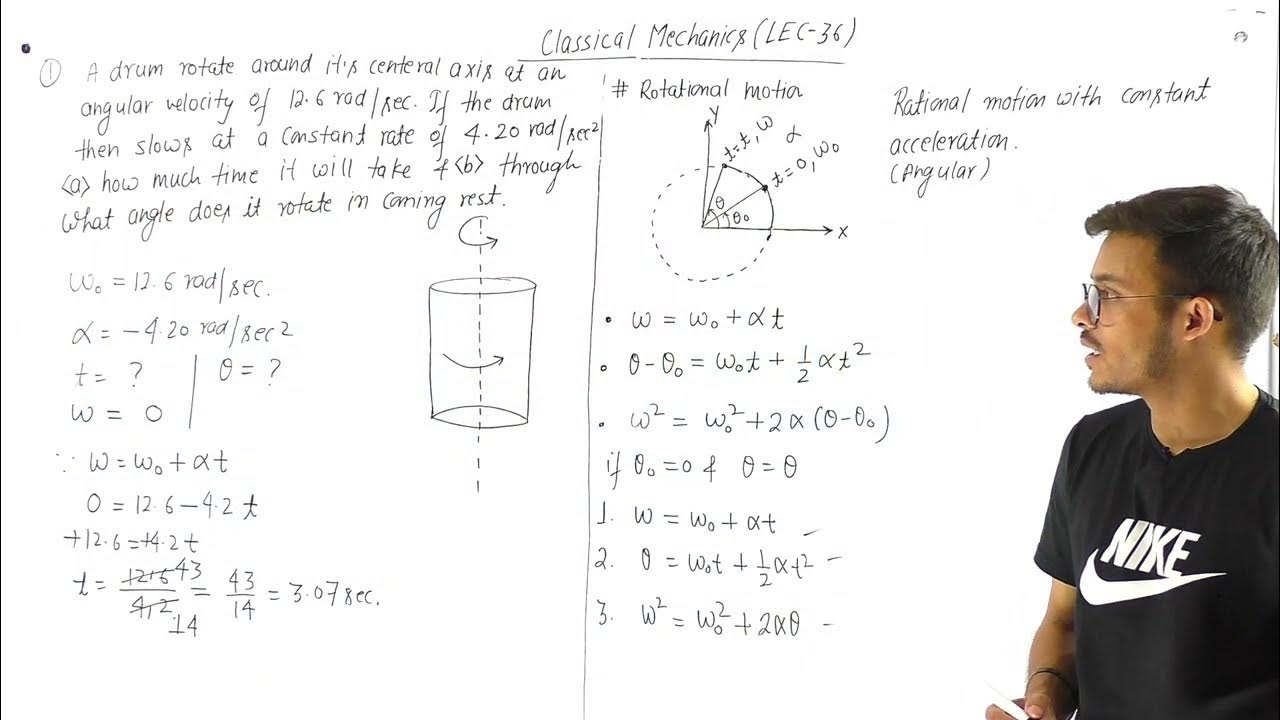 Classical Mechanics (LEC-36)
① A drum rotate around it's centeral axis at an
angular velocity of 12.6 rad/sec. If the drum
then slows at a constant rate of 4.20 rad/sec²
<a> how much time it will take & <b> through
what angle does it rotate in coming rest.
ω₀ = 12.6 rad/sec.
α = -4.20 rad/sec²
t = ? | θ = ?
ω = 0
∵ ω = ω₀ + αt
0 = 12.6 - 4.2 t
+12.6 = +4.2 t
t = 12.6 43 / 4.2 14 = 43/14 = 3.07 sec.
# Rotational motion
Y
t=t, ω
α
t=0, ω₀
θ
θ₀
X
• ω = ω₀ + αt
• θ-θ₀ = ω₀t + 1/2 αt²
• ω² = ω₀² + 2α(θ-θ₀)
if θ₀ = 0 & θ = θ
1. ω = ω₀ + αt
2. θ = ω₀t + 1/2 αt²
3. ω² = ω₀² + 2αθ
Rational motion with constant
acceleration.
(Angular)
NIKE